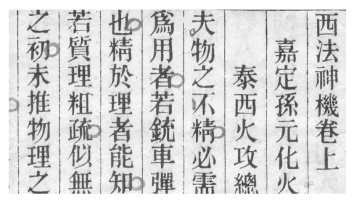 西法神機卷上
嘉定孫元化火
泰西火攻總
夫物之不精必需
爲用者若銃車彈
也精於理者能知
若質理粗疏似無
之初未推物理之